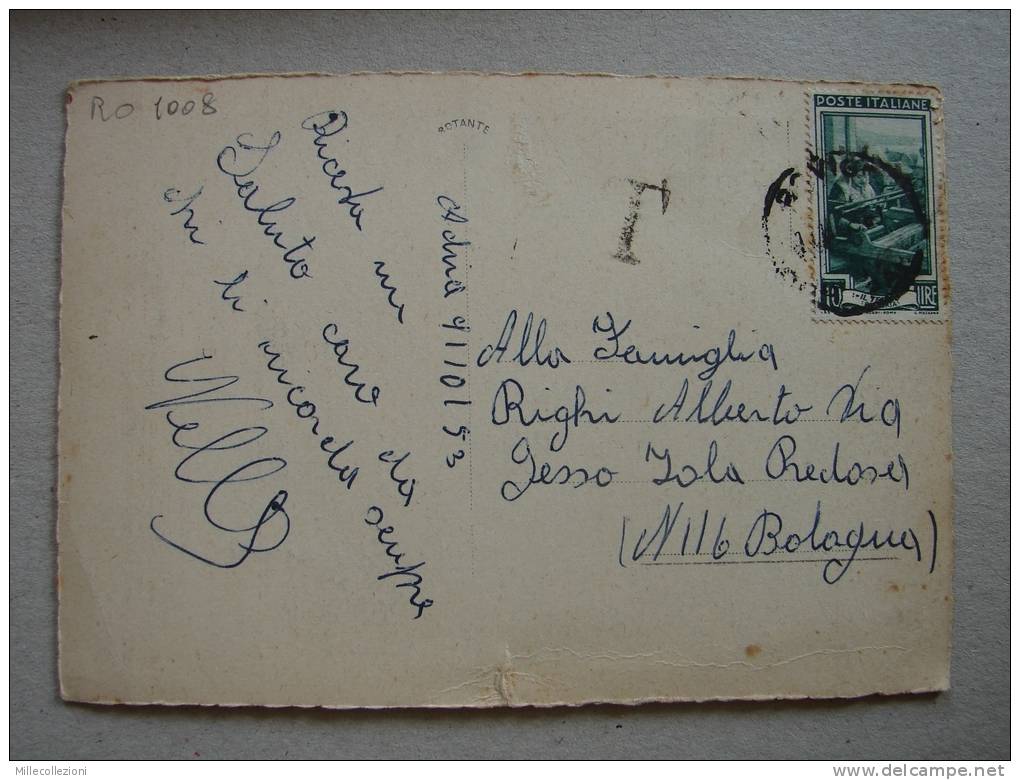 RO 1008
Ricevi un
Saluto caro da
chi ti ricorda sempre
Nello
Adria 9/10/53
ROTANTE
T
POSTE ITALIANE
10 LIRE
Alla Famiglia
Righi Alberto Via
Gesso Zola Predosa
(N116 Bologna)
Millecollezioni
delcampe.net